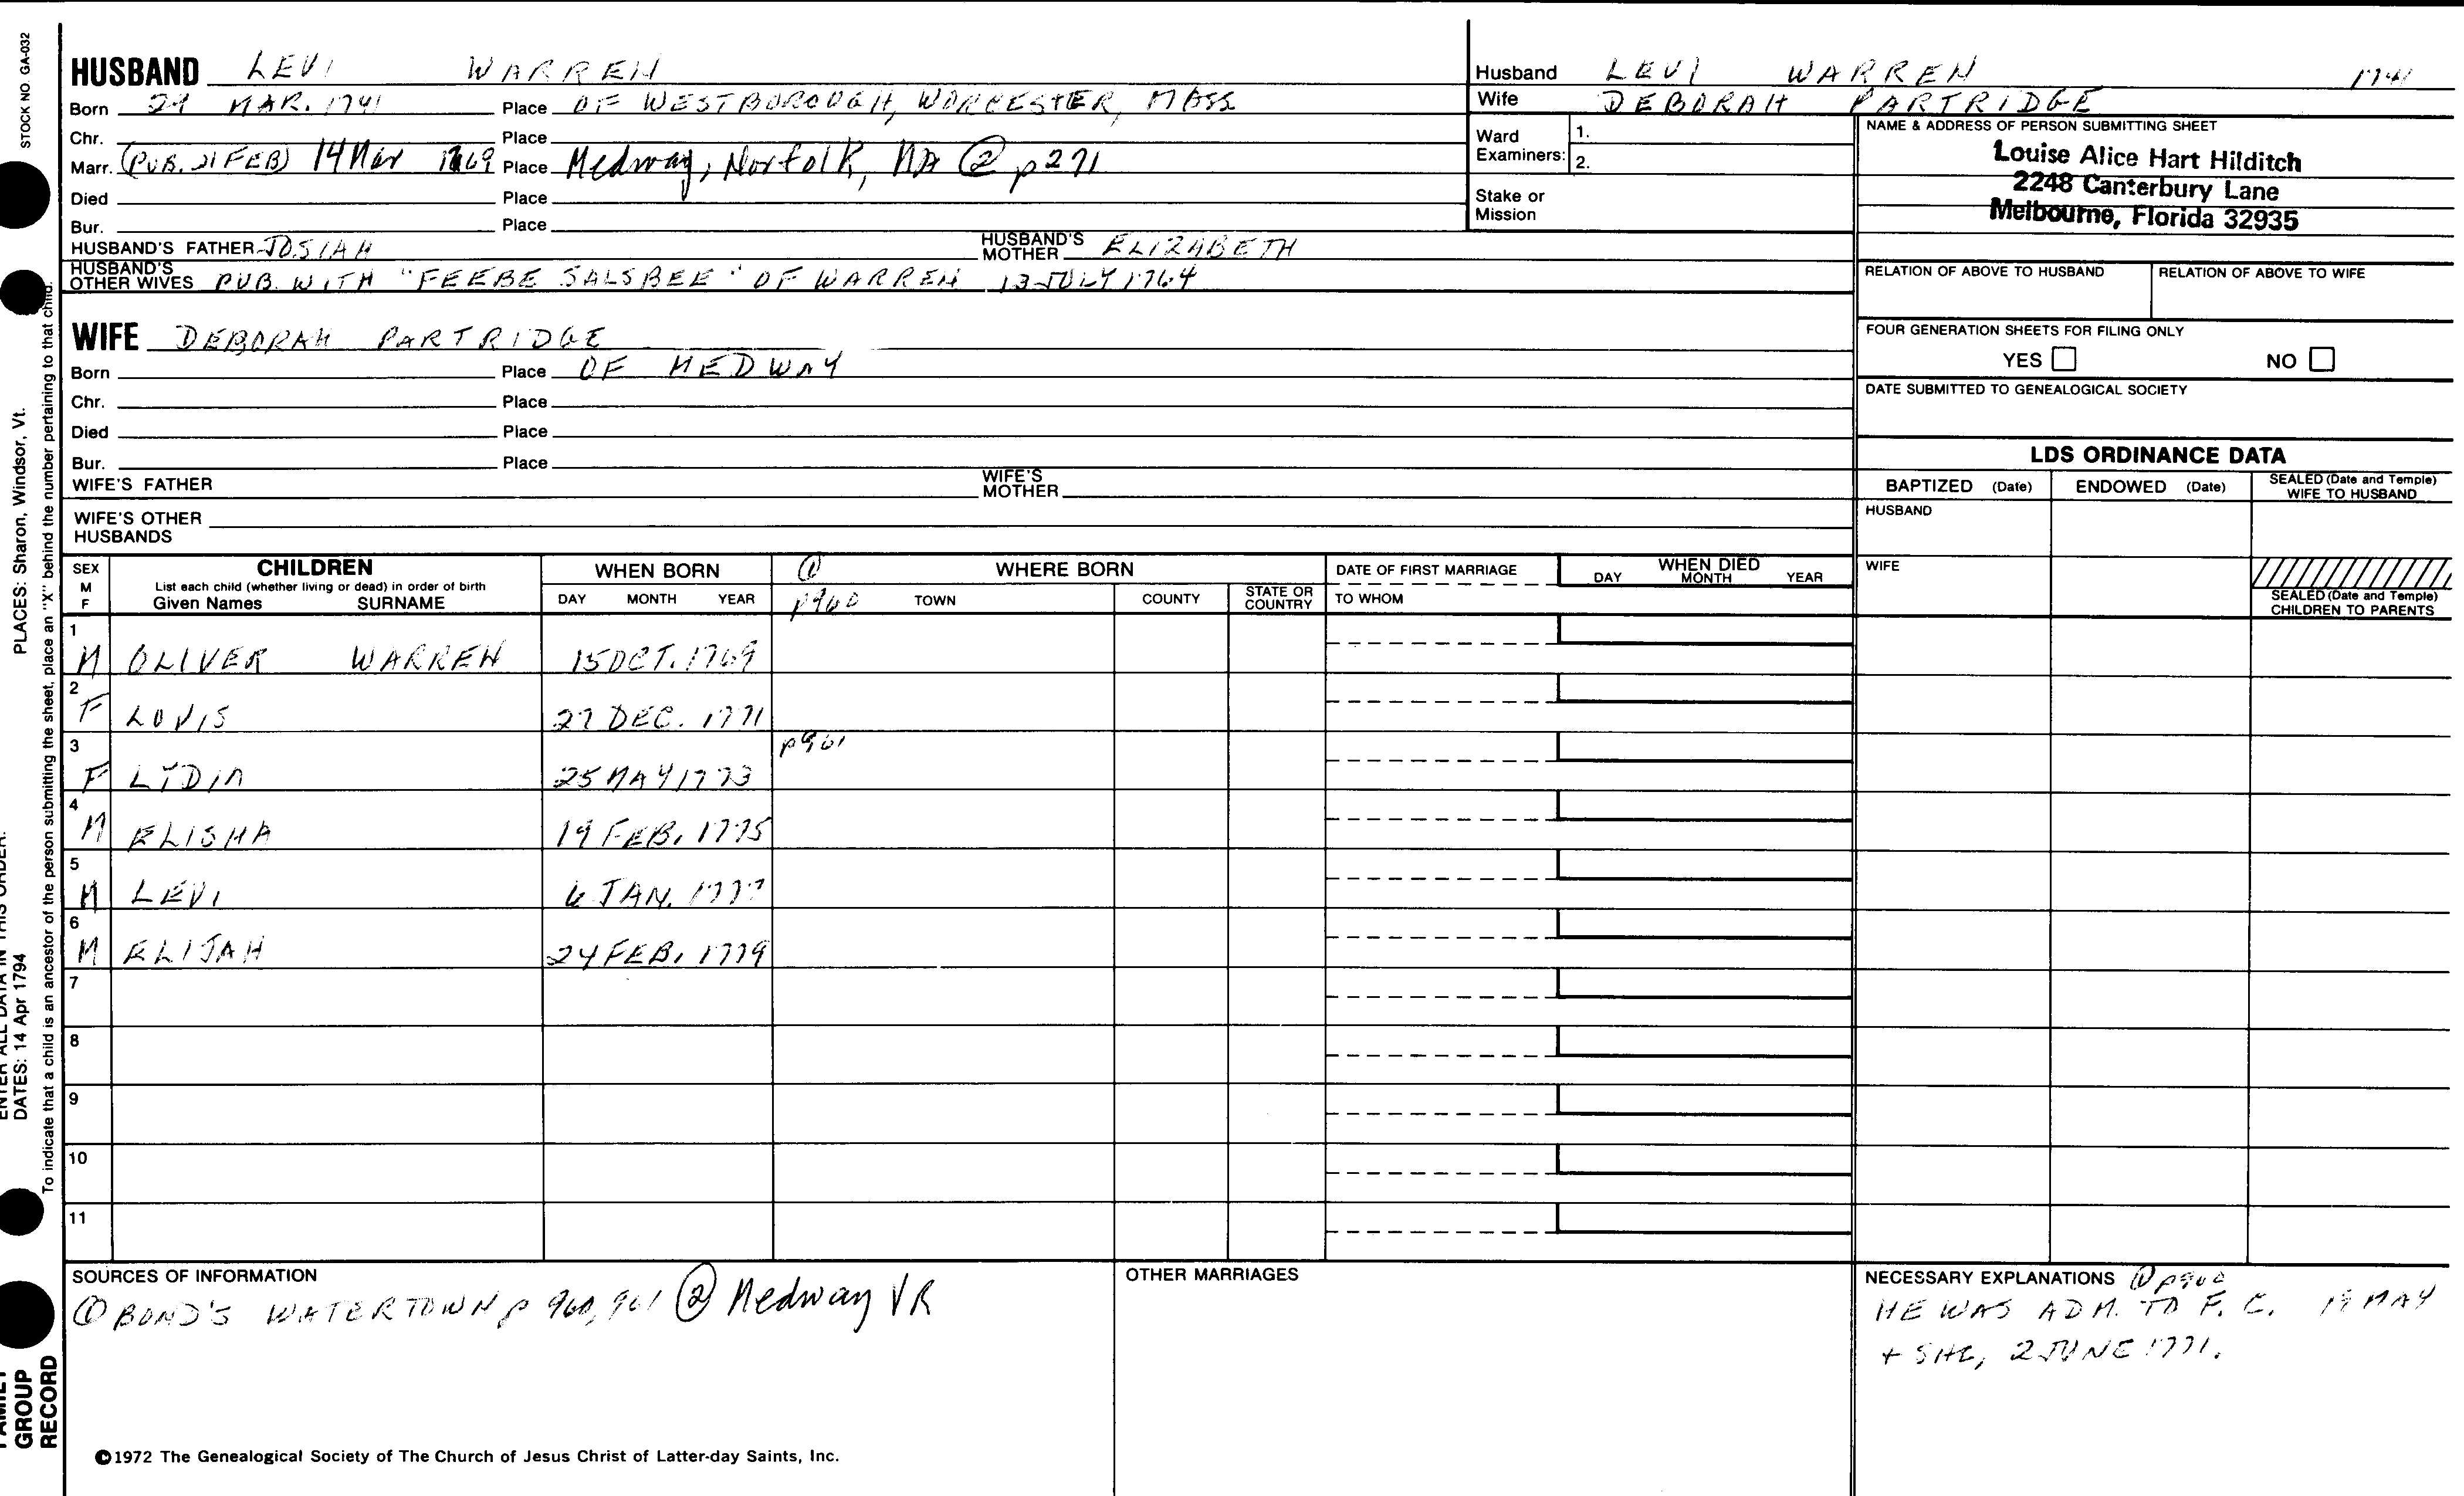 STOCK NO. GA-032
HUSBAND LEVI WARREN
Born 29 MAR. 1741 Place OF WESTBOROUGH, WORCESTER, MASS
Chr. Place
Marr. (PUB. 21 FEB) 14 Mar 1769 Place Medway, Norfolk, MA ② p271
Died Place
Bur. Place
HUSBAND'S FATHER JOSIAH HUSBAND'S MOTHER ELIZABETH
HUSBAND'S OTHER WIVES PUB. WITH "FEEBE SALSBEE" OF WARREN 13 JULY 1764
WIFE DEBORAH PARTRIDGE
Born Place OF MEDWAY
Chr. Place
Died Place
Bur. Place
WIFE'S FATHER WIFE'S MOTHER
WIFE'S OTHER HUSBANDS
Husband LEVI WARREN 1741
Wife DEBORAH PARTRIDGE
Ward Examiners: 1.
2.
Stake or Mission
NAME & ADDRESS OF PERSON SUBMITTING SHEET
Louise Alice Hart Hilditch
2248 Canterbury Lane
Melbourne, Florida 32935
RELATION OF ABOVE TO HUSBAND RELATION OF ABOVE TO WIFE
FOUR GENERATION SHEETS FOR FILING ONLY
YES NO
DATE SUBMITTED TO GENEALOGICAL SOCIETY
LDS ORDINANCE DATA
BAPTIZED (Date) ENDOWED (Date) SEALED (Date and Temple) WIFE TO HUSBAND
HUSBAND
WIFE
SEALED (Date and Temple) CHILDREN TO PARENTS
SEX M F CHILDREN WHEN BORN ① WHERE BORN DATE OF FIRST MARRIAGE WHEN DIED
List each child (whether living or dead) in order of birth
Given Names SURNAME DAY MONTH YEAR p960 TOWN COUNTY STATE OR COUNTRY TO WHOM DAY MONTH YEAR
1 M OLIVER WARREN 15 OCT. 1769
2 F LOVIS 27 DEC. 1771
3 F LYDIA 25 MAY 1773 p961
4 M ELISHA 19 FEB. 1775
5 M LEVI 6 JAN. 1777
6 M ELIJAH 24 FEB. 1779
7
8
9
10
11
SOURCES OF INFORMATION
① BOND'S WATERTOWN p 960, 961 ② Medway VR
OTHER MARRIAGES
NECESSARY EXPLANATIONS ① p960
HE WAS ADM. TO F. C. 19 MAY
+ SHE, 2 JUNE 1771.
©1972 The Genealogical Society of The Church of Jesus Christ of Latter-day Saints, Inc.
PLACES: Sharon, Windsor, Vt.
ENTER ALL DATA IN THIS ORDER:
DATES: 14 Apr 1794
To indicate that a child is an ancestor of the person submitting the sheet, place an "X" behind the number pertaining to that child.
FAMILY
GROUP
RECORD